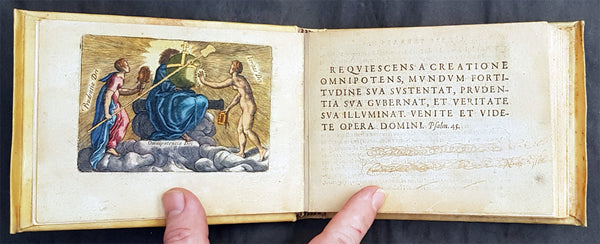 Prudentia Dei
Omnipotencia Dei
REQVIESCENS A CREATIONE
OMNIPOTENS, MVNDVM FORTI-
TVDINE SVA SVSTENTAT, PRVDEN-
TIA SVA GVBERNAT, ET VERITATE
SVA ILLVMINAT. VENITE ET VIDE-
TE OPERA DOMINI. Psalm. 45.